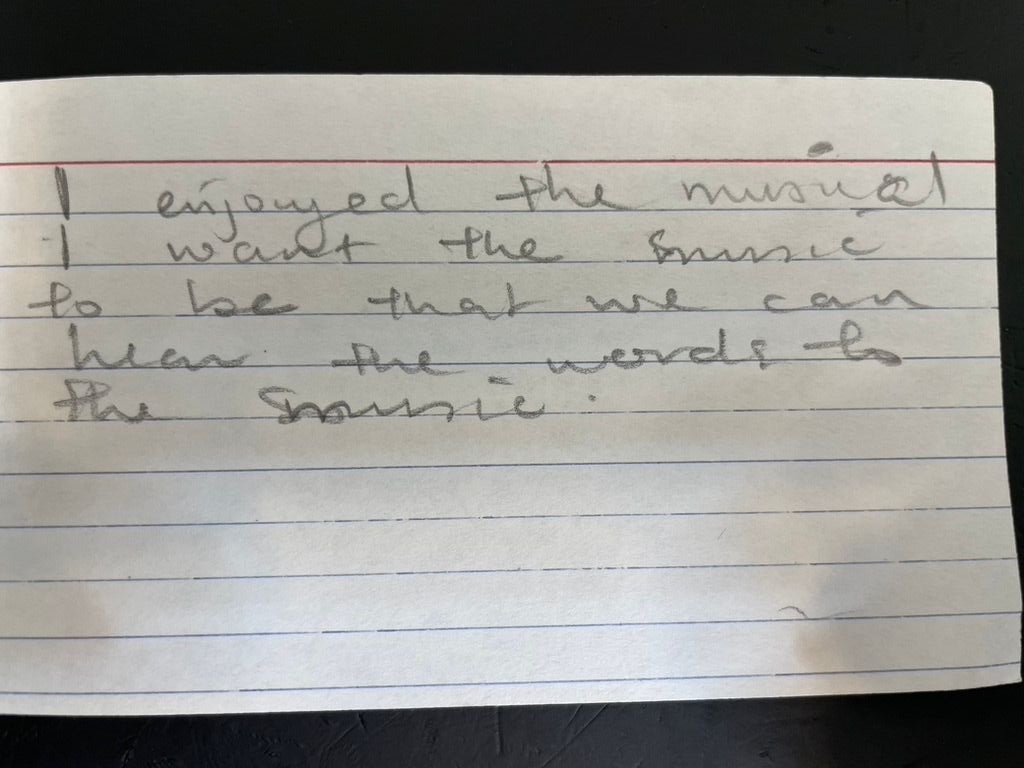 I enjoyed the musical
I want the music
to be that we can
hear the words to
the music.